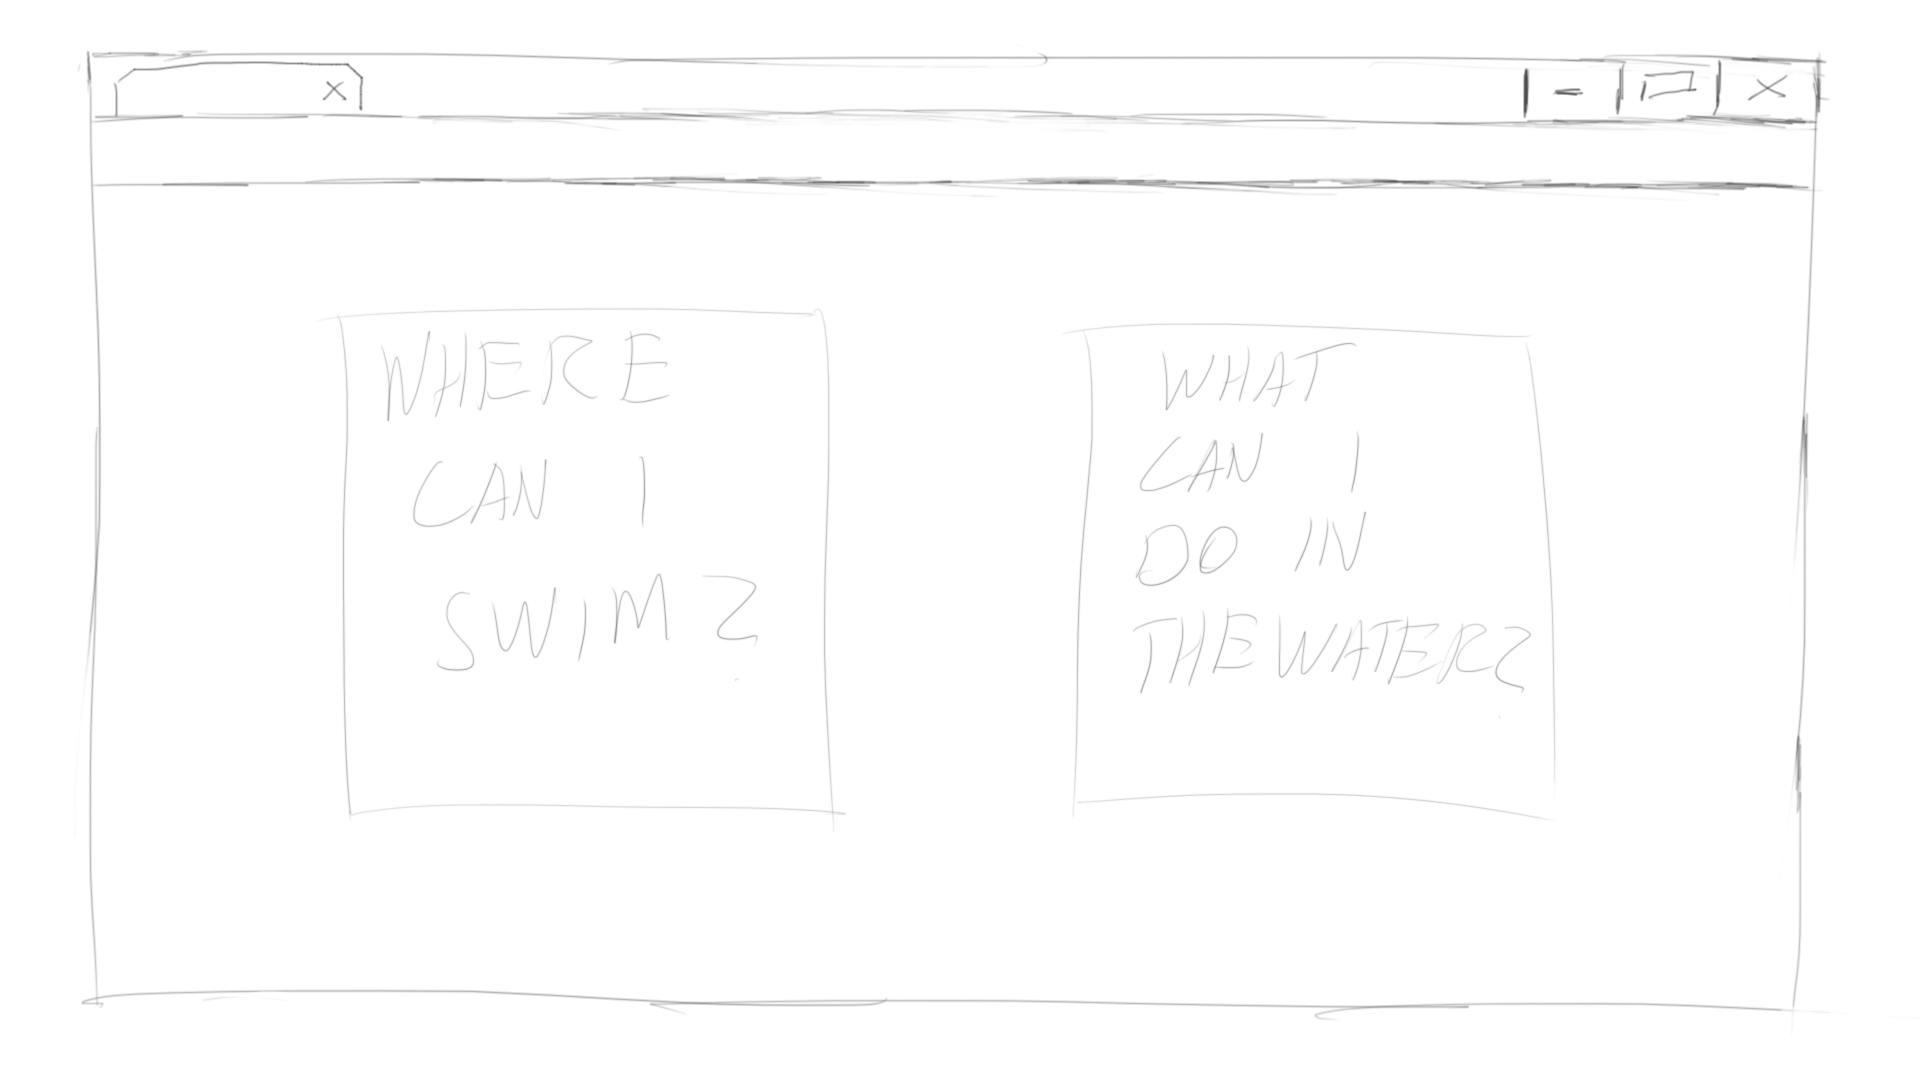 WHERE
CAN I
SWIM?
WHAT
CAN I
DO IN
THE WATER?